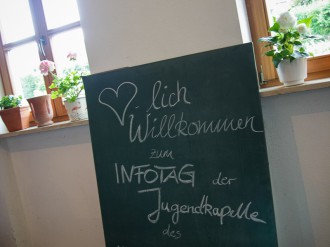 ♡lich
Willkommen
zum
INFOTAG der
Jugendkapelle
des